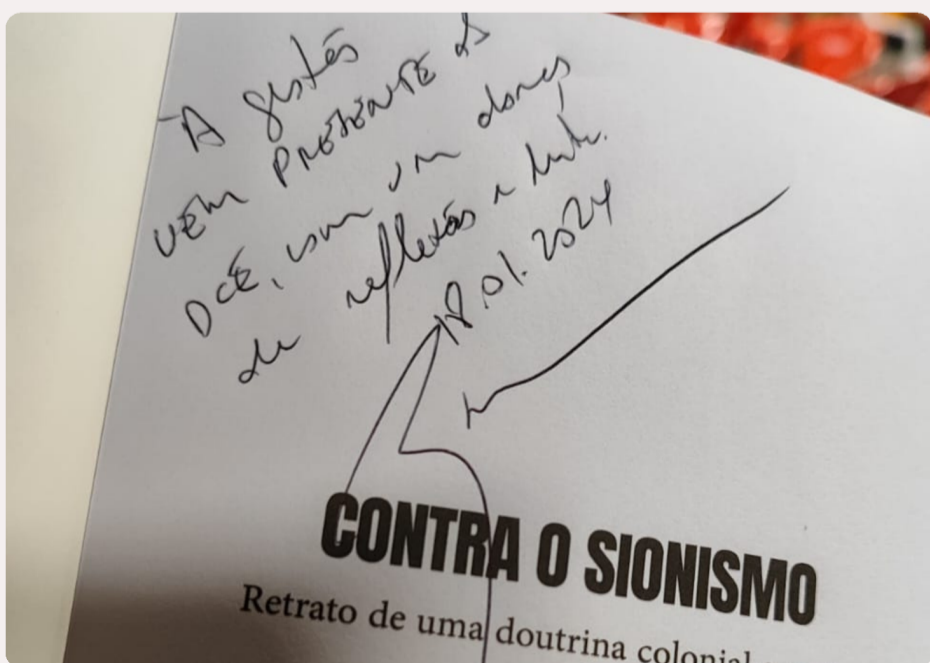 À gestão
VEM PRESENTE do
DCE, com um abraço
de reflexão e luta.
18.01.2024
CONTRA O SIONISMO
Retrato de uma doutrina colonial